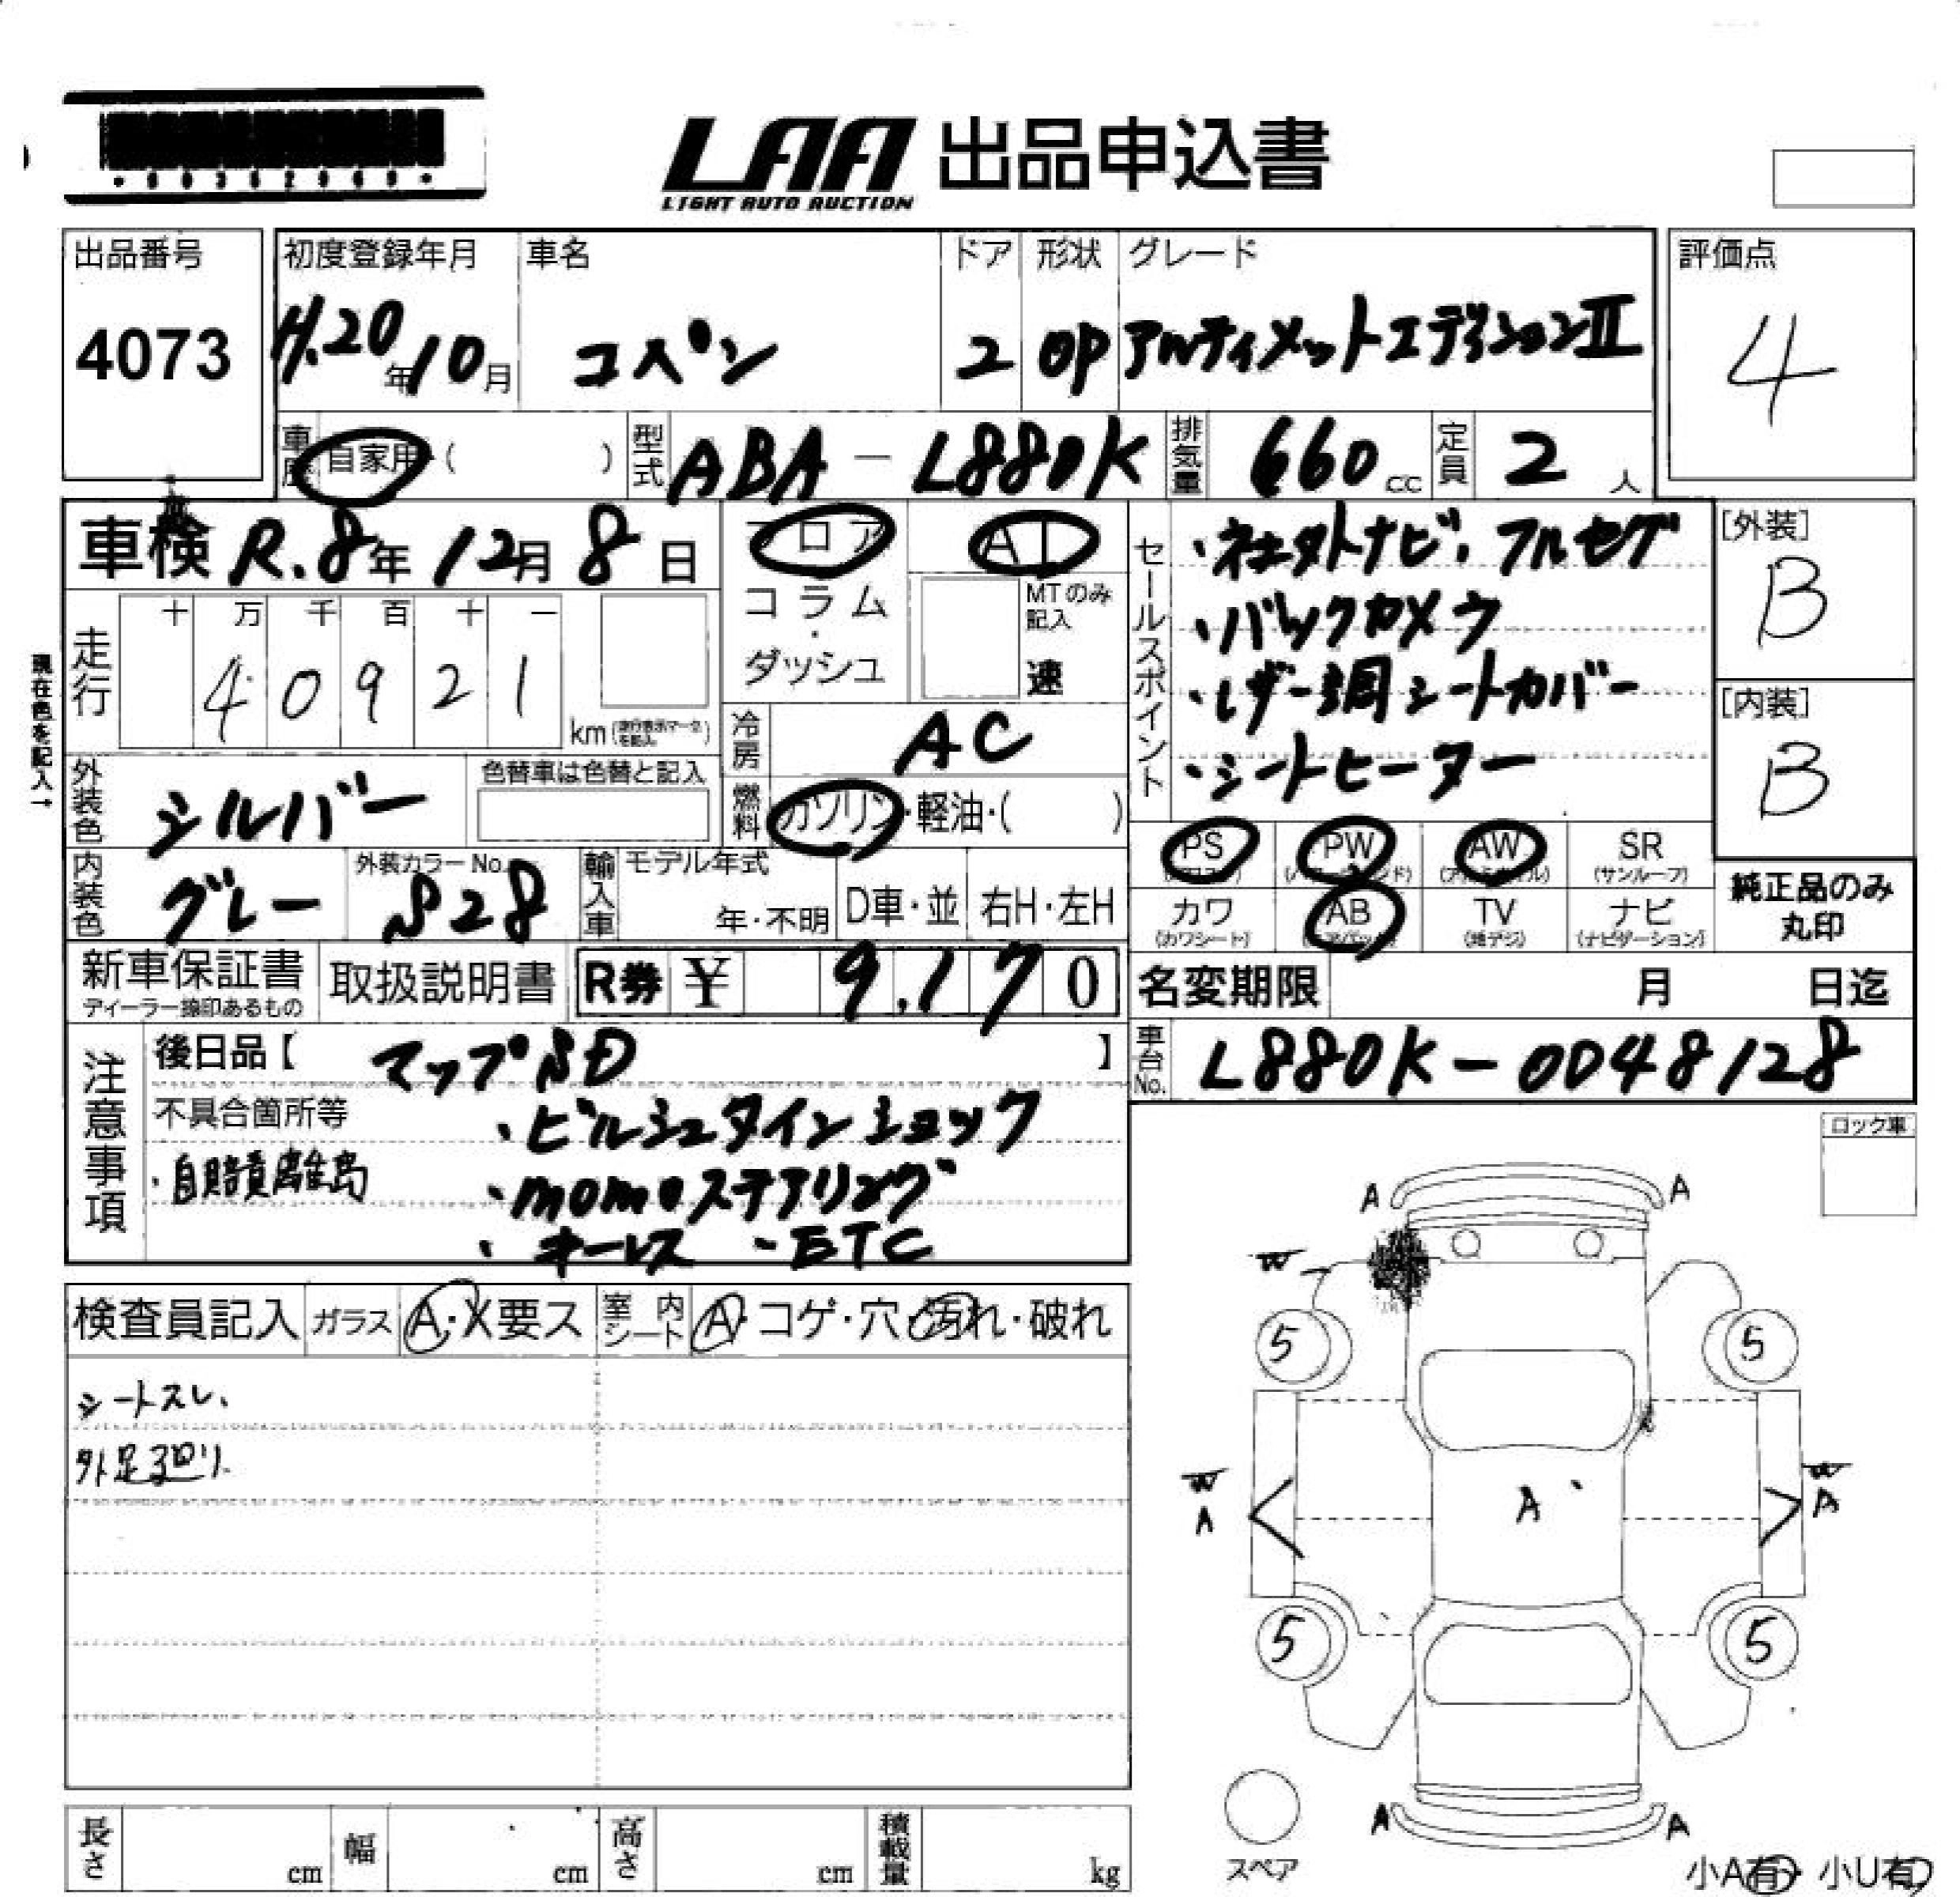 LAA 出品申込書
LIGHT AUTO AUCTION
出品番号 初度登録年月 車名 ドア 形状 グレード 評価点
4073 H.20年10月 コペン 2 OP アルティメットエディションII 4
車歴 自家用・( ) 型式 ABA-L880K 排気量 660cc 定員 2人
車検 R.8年12月8日 フロア AT
コラム・ダッシュ MTのみ記入 速
セールスポイント
・社外ナビ、フルセグ
・バックカメラ
・レザー調シートカバー
・シートヒーター
[外装] B
[内装] B
現在色を記入→
走行 十 万 千 百 十 一
40921 km
冷房 AC
外装色 シルバー 色替車は色替と記入
燃料 ガソリン・軽油・( )
PS PW AW SR
(サンルーフ)
内装色 グレー 外装カラーNo. S28
輸入車 モデル年式 年・不明 D車・並 右H・左H
カワ AB TV ナビ
(カワシート) (地デジ) (ナビゲーション)
純正品のみ丸印
新車保証書 取扱説明書 R券 ¥ 9,170
ディーラー捺印あるもの
名変期限 月 日迄
車台No. L880K-0048128
注意事項
後日品【 マップSD 】
不具合箇所等 ・ビルシュタインショック
・自賠責離島 ・momoステアリング
・キーレス ・ETC
ロック車
検査員記入 ガラス A・X要ス 室内シート A・コゲ・穴・汚れ・破れ
シートスレ、
外足廻り
A A
W
5 5
W W
A A A
5 5
A A
スペア
長さ cm 幅 cm 高さ cm 積載量 kg
小A有・小U有